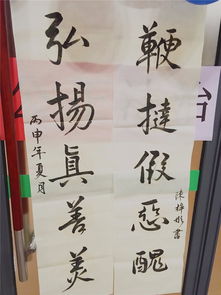 鞭撻假惡醜
弘揚真善美
丙申年夏月
陳梓彤書